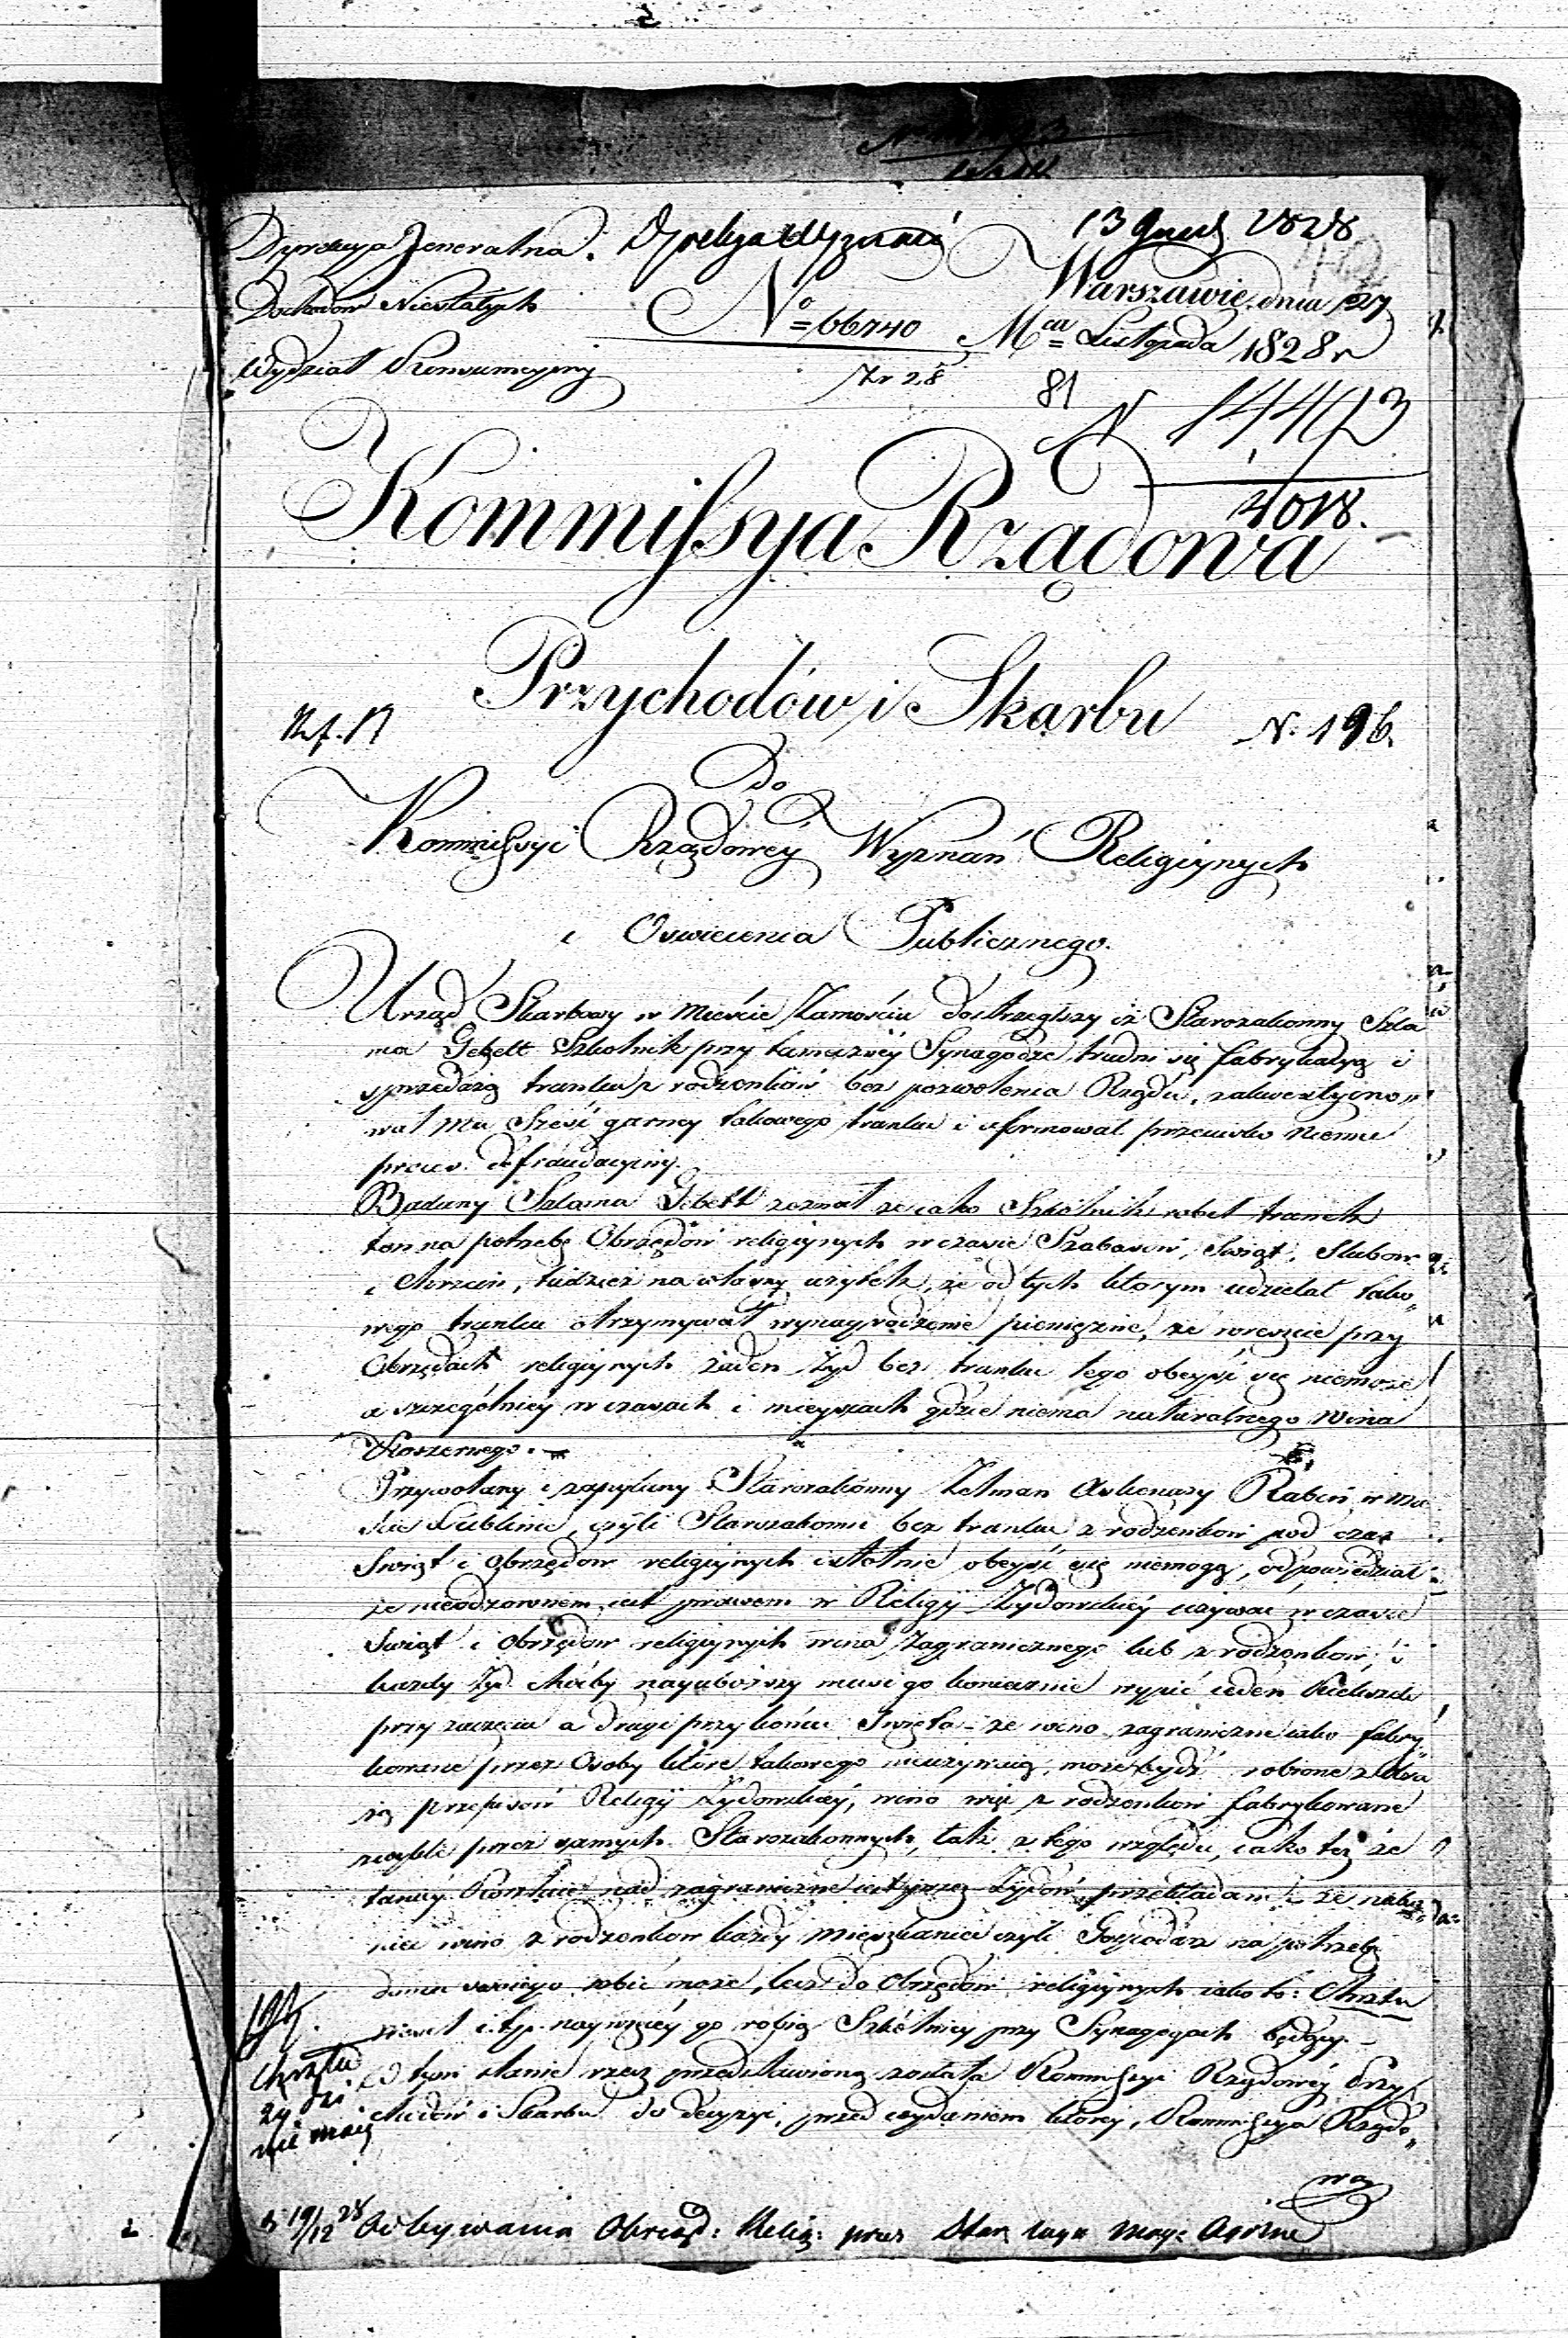 Dyrekcya Jeneralna.
Dochodow Niestałych
Wydział Konsumcyiny
Dyrekcya Wyznań
13 Grud 1828
Warszawie dnia 27
Nº 66740
Mca Listopada 1828 r
81
N 14413
4018.
Kommissya Rządowa
Przychodów i Skarbu
N. 196.
Do
Kommissyi Rządowéy Wyznań Religiynych
i Oswiecenia Publicznego.
Urząd Skarbowy w Mieście Zamościu dostrzegłszy iż Starozakonny Szla
ma Gebelt Szkolnik przy tameczney Synagodze trudni się fabrykacyą i
sprzedażą trunku z rodzonków bez pozwolenia Rządu, zakwestyono„
wał mu Sześć garncy takowego trunku i uformował przeciwko niemu
proces defraudacyiny.
Badany Szlama Gebelt zeznał ze iako Szkólnik robił trunek
ten na potrzebę Obrzędów religiynych w czasie Szabasów, Swiąt, Slubow
i Chrzcin, tudzież na własny uzytek, że od tych ktorym udzielał tako„
wego trunku otrzymywał wynagrodzenie pieniężne, że wreszcie przy
Obrzędach religiynych żaden Żyd bez trunku tego obeyść się niemoże
a szczególniey w czasach i mieyscach gdzie niema naturalnego Wina
Koszernego.
Przywołany i zapytany Starozakonny Zelman Askenazy Rabin w Mie
scie Lublinie, czyli Starozakonni bez trunku z rodzenkow pod czas
Swiąt i Obrzędow religiynych istotnie obeyść się niemogą, odpowiedział
że nieodzownem iest prawem w Religij Żydowskiéy używać w czasie
Swiąt i Obrzędow religiynych wina Zagranicznego lub z rodzonkow, i
kazdy Żyd choćby nayuboższy musi go koniecznie wypić ieden Kieliszek
przy zaczęciu a drugi przy końcu Święta – ze wino zagraniczne iako fabry„
kowane przez Osoby które takowego nieużywaią, może bydź robione z obra
zą przepisów Religij Żydowskiéy, wino więc z rodzonkow fabrykowane
zwykle przez samych Starozakonnych, tak z tego względu, iako też że
taniéy kosztuie nad zagraniczne iest przez Żydów przekładane i że nako
niec wino z rodzonkow kazdy Mieszkaniec czyli Gospodarz na potrzebę
domu swoiego robić może, lecz do Obrzędów religiynych iako to: Chrztu
i t.p. naywięcéy go robią Szkólnicy przy Synagogach będący.
W tym stanie rzecz przedstawioną została Kommissyi Rządowéy Przy
chodów i Skarbu do decyzyi, przed wydaniem któréy, Kommissya Rządo„
wa
Chrztu
żydzi
nie maią
19/12 28 Odbywania Obrząd: Relig: przez Star